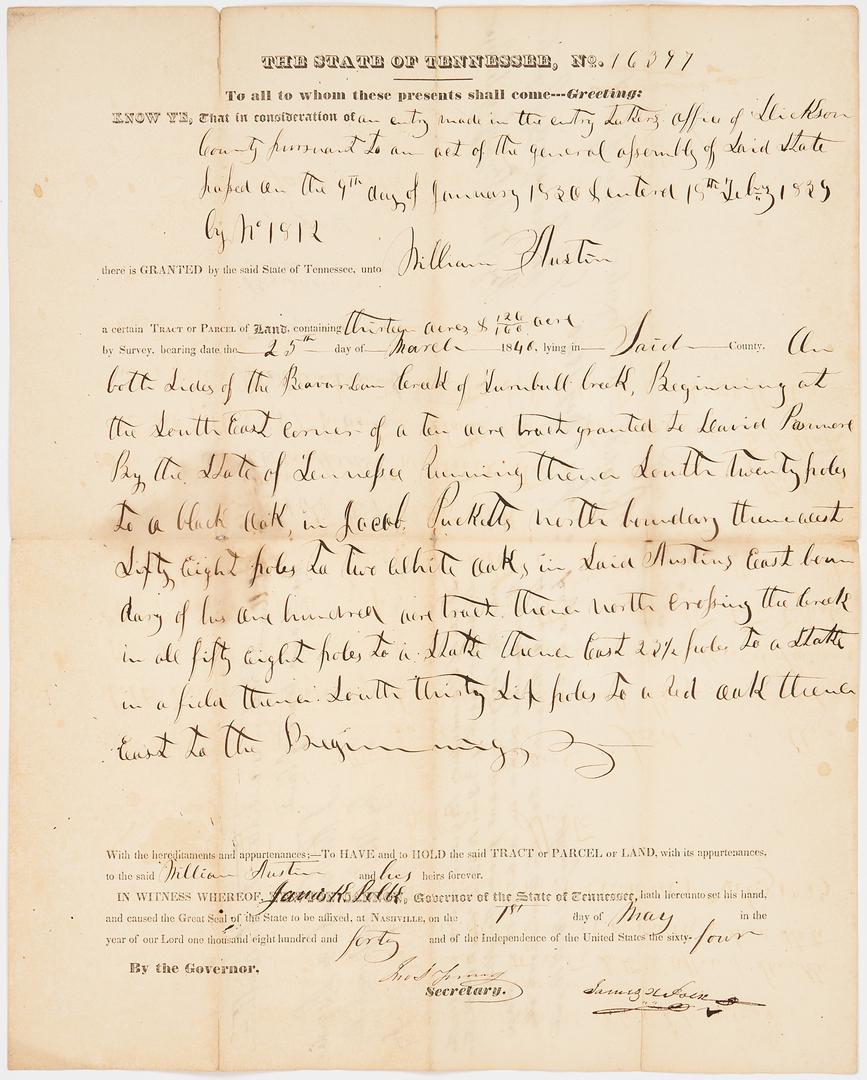 THE STATE OF TENNESSEE, No. 16397
To all to whom these presents shall come---Greeting:
KNOW YE, That in consideration of an entry made in the entry takers office of Dickson
County pursuant to an act of the general assembly of Said State
passed on the 9th day of January 1830 & enterd 18th Feby 1839
by No 1812
there is GRANTED by the said State of Tennessee, unto William Austin
a certain TRACT or PARCEL of Land, containing thirteen acres & 120/160 acre
by Survey, bearing date the 25th day of March 1840, lying in Said County. On
both sides of the Beaverdam Creek of Turnbull Creek, Beginning at
the South East corner of a ten acre track granted to David Pasmore
By the State of Tennessee Running thence South twenty poles
to a black oak, in Jacob Pucketts north boundary thence west
fifty Eight poles to two white oaks in Said Austins East boun
dary of his one hundred acre track thence north crossing the creek
in all fifty eight poles to a Stake thence East 23½ poles to a Stake
in a field thence South thirty Six poles to a red oak thence
East to the Beginning
With the hereditaments and appurtenances;—To HAVE and to HOLD the said TRACT or PARCEL or LAND, with its appurtenances,
to the said William Austin and his heirs forever.
IN WITNESS WHEREOF, James K. Polk, Governor of the State of Tennessee, hath hereunto set his hand,
and caused the Great Seal of the State to be affixed, at NASHVILLE, on the 1st day of May in the
year of our Lord one thousand eight hundred and forty and of the Independence of the United States the sixty-four
By the Governor,
Jno S Young
Secretary.
James K Polk